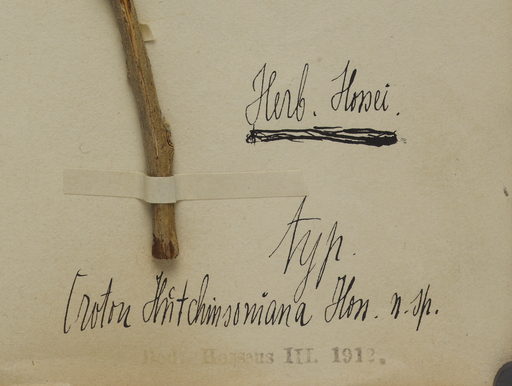 Herb. Hossei.
typ.
Croton Hutchinsoniana Hoss. n. sp.
Dedit Hosseus III. 1912.